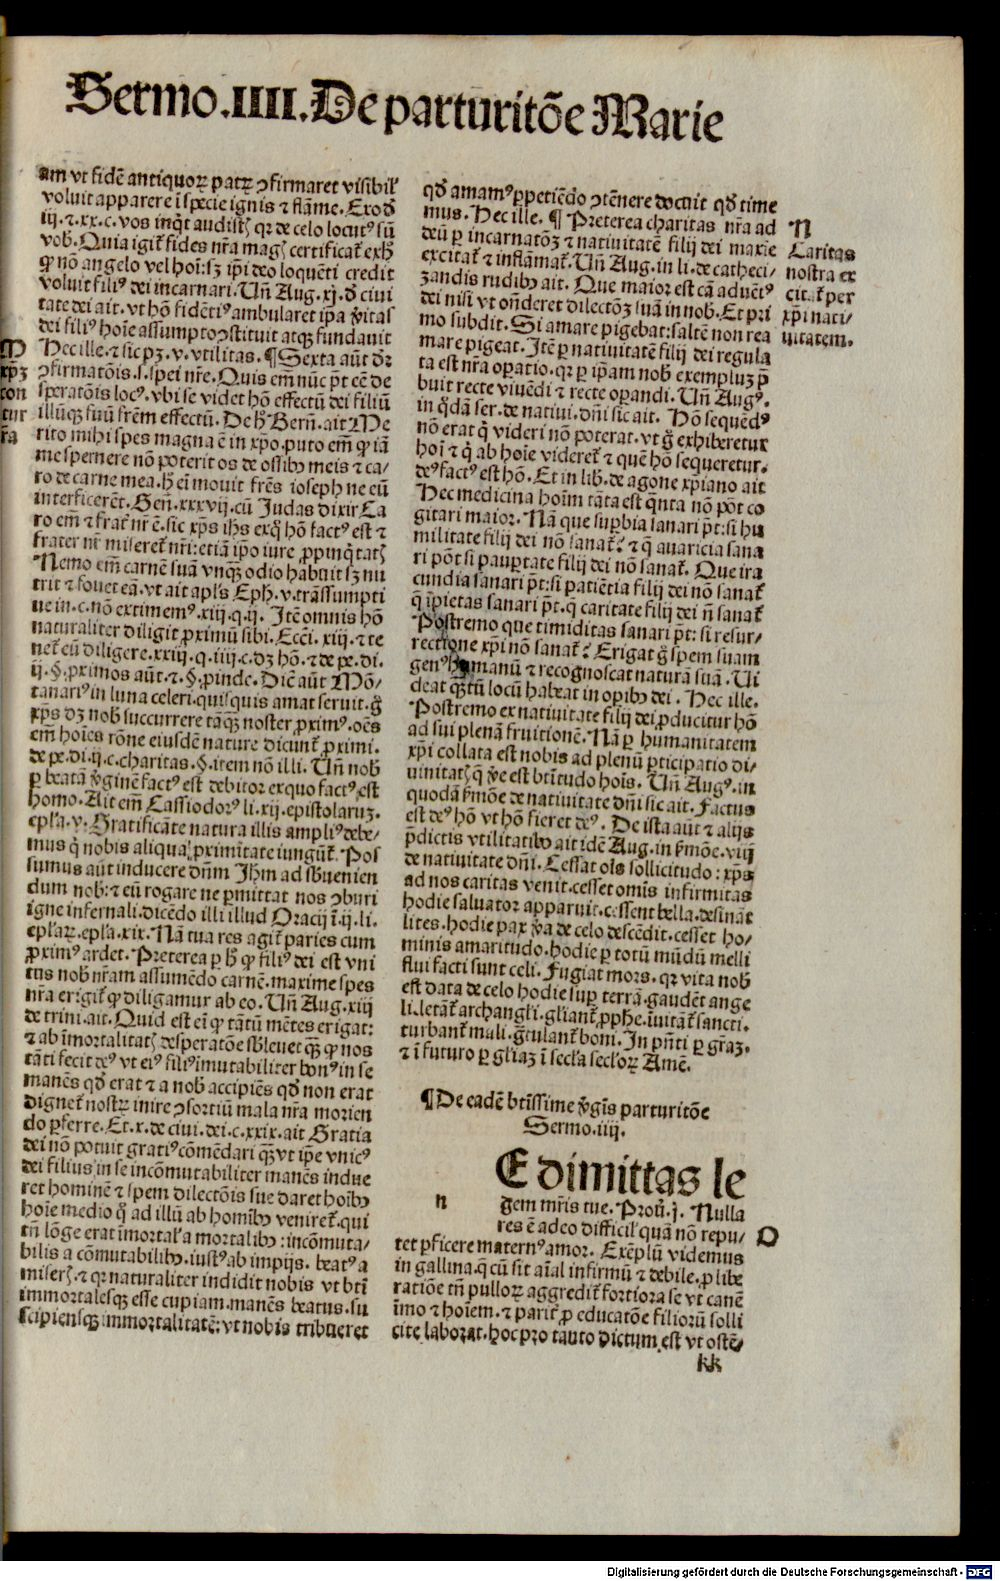 Sermo.IIII.De parturitõe Marie
am vt fidē antiquoꝝ patꝝ ꝯfirmaret visibil'
voluit apparere ī specie ignis ⁊ flāme. Exo đ
iij.⁊.xx.c. vos inq̇t audistꝭ qꝛ de celo locutꝰ sū
vob̄. Quia igit̄ fides nr̄a magꝭ certificat̄ exhꝭ
ꝙ nō angelo vel hoī: sꝫ ip̄i deo loquēti credit
voluit filiꝰ dei incarnari. Vn̄ Aug. xj. đ ciui
tate dei ait. vt hō fidētiꝰ ambularet ip̄a v̓itas
dei filiꝰ hoīe assumpto ꝯstituit atqꝫ fundauit
Hec ille. ⁊ sic pꝫ. v. vtilitas. ¶ Sexta aūt dr̄
ꝯfirmatōis. s. spei nr̄e. Quis em̄ nūc pt̄ ee de
speratōis locꝰ. vbi se videt hō effectū dei filiū
illūqꝫ suū frēm effectū. De h̄ Bern̄. ait Me
rito mihi spes magna ē in xp̄o. puto em̄ ꝙ iā
me spernere nō poterit os de ossibꝰ meis ⁊ ca-
ro de carne mea. h̄ eī mouit frēs ioseph ne eū
interficerēt. Gen̄. xxxvij. cū Judas dixit Ca
ro em̄ ⁊ frat̄ nr̄ ē. sic xp̄s ihs exq̊ hō factꝰ est ⁊
frater nr̄ miseret̄ nr̄i: etiā ip̄o iure ꝓpinq̇tatꝭ
Nemo em̄ carnē suā vnqꝫ odio habuit sꝫ nu
trit ⁊ fouet eā. vt ait apl's Eph. v. trāssumpti
ue in. c. nō extimemꝰ. xiij. q. ij. Itē omnis hō
naturaliter diligit ꝓximū sibi. Ecci. xiij. ⁊ te
net̄ eū diligere. xxiij. q. iiij. c. dꝫ hō. ⁊ de pe. di.
ij. §. ꝓximos aūt. ⁊. §. ꝓinde. Diē aūt Mō/
tanariꝰ in luna celeri. quisquis amat seruit. g̊
xp̄s dꝫ nob̄ succurrere tāqꝫ noster ꝓximꝰ. oēs
em̄ hoīes rōne eiusdē nature dicunt̄ ꝓximi.
de pe. di. ij. c. charitas. §. item nō illi. Vn̄ nob̄
ꝑ beatā v̓ginē factꝰ est debitor ex quo factꝰ est
homo. Ait em̄ Cassiodorꝰ li. xij. epistolaruꝫ.
epl'a. v. Gratificāte natura illis ampliꝰ debe-
mus q̇ nobis aliqua ꝓximitate iungūt̄. Pos
sumus aūt inducere dn̄m Jhm̄ ad sb̓uenien
dum nob̄: ⁊ eū rogare ne ꝑmittat nos ꝯburi
igne infernali. dicēdo illi illud Oracij ī. ij. li.
epl'aꝝ. epl'a. xix. Nā tua res agit̄ paries cum
ꝓximꝰ ardet. Preterea ꝑ h̄ ꝙ filiꝰ dei est vni
tus nob̄ nr̄am assumēdo carnē. maxime spes
nr̄a erigit̄ ꝙ diligamur ab eo. Vn̄ Aug. xiij
de trini. ait. Quid est eī ꝙ tātū mētes erigat:
⁊ ab īmortalitatꝭ desperatōe sb̓leuet qꝫ ꝙ nos
tāti fecit deꝰ vt eiꝰ filiꝰ īmutabiliter bonꝰ in se
manēs qđ erat ⁊ a nob̄ accipiēs qđ non erat
dignet̄ nostꝝ inire ꝯsortiū mala nr̄a morien
do ꝑferre. Et. x. de ciui. dei. c. xxix. ait Gratia
dei nō potuit gratiꝰ cōmēdari qꝫ vt ip̄e vnicꝰ
dei filius in se incōmutabiliter manēs indue
ret hominē ⁊ spem dilectōis sue daret hoībꝰ
hoīe medio q̊ ad illū ab homībꝰ veniret̄. qui
tn̄ lōge erat īmortal' a mortalibꝰ: incōmuta/
bilis a cōmutabilibꝰ. iustꝰ ab impijs. beatꝰ a
miserꝭ. ⁊ qꝛ naturaliter indidit nobis vt bt̄i
immortalesqꝫ esse cupiam. manēs beatus. su
scipiensqꝫ immortalitatē: vt nobis tribueret
M
xp̄ꝫ
con
tur
r̄a
qđ amamꝰ ꝑpetiēdo ꝯtēnere docuit qđ time
mus. Hec ille. ¶ Preterea charitas nr̄a ad
deū ꝑ incarnatōꝫ ⁊ natiuitatē filij dei maxie
excitat̄ ⁊ inflāmat̄. Vn̄ Aug. in li. de catheci/
zandis rudibꝰ ait. Que maior est cā aduētꝰ
dei nisi vt on̄deret dilectōꝫ suā in nob̄. Et pri
mo subdit. Si amare pigebat: saltē non rea
mare pigeat. Itē ꝑ natiuitatē filij dei regula
ta est nr̄a oꝑatio. qꝛ ꝑ ip̄am nob̄ exempluꝫ p̄
buit recte viuēdi ⁊ recte oꝑandi. Vn̄ Augꝰ.
in q̇dā ser. de natiui. dn̄i sic ait. Hō sequēdꝰ
nō erat q̇ videri nō poterat. vt g̊ exhiberetur
hoī ⁊ q̇ ab hoīe videret̄ ⁊ quē hō sequeretur.
deꝰ factꝰ est hō. Et in lib. de agone xp̄iano ait
Hec medicina hoīm tāta est q̄nta nō pōt co
gitari maior. Nā que supbia sanari pt̄: si hu
militate filij dei nō sanat̄? ⁊ q̄ auaricia sana
ri pōt si paupertate filij dei nō sanat̄. Que ira
cundia sanari pt̄: si patiētia filij dei nō sanat̄
q̄ īpietas sanari pt̄. q̄ caritate filij dei n̄ sanat̄
Postremo que timiditas sanari pt̄: si resur/
rectione xp̄i nō sanat̄? Erigat g̊ spem suam
genꝰ humanū ⁊ recognoscat naturā suā. Ui
deat qꝫtū locū habeat in oꝑibꝰ dei. Hec ille.
Postremo ex natiuitate filij dei ꝓducitur hō
ad sui plenā fruitionē. Nā ꝑ humanitatem
xp̄i collata est nobis ad plenū ꝑticipatio di/
uinitatꝭ q̄ v̓e est bt̄itudo hoīs. Vn̄ Augꝰ. in
quodā s̓mōe de natiuitate dn̄i sic ait. Factus
est deꝰ hō vt hō fieret deꝰ. De ista aūt ⁊ alijs
p̄dictis vtilitatibꝰ ait idē Aug. in s̓mōe. viij
de natiuitate dn̄i. Cessat oīs sollicitudo: xp̄s
ad nos caritas venit. cesset omīs infirmitas
hodie saluator apparuit. cessent bella. desināt
lites. hodie pax v̓a de celo descēdit. cesset ho/
minis amaritudo. hodie ꝑ totū mūdū melli
flui facti sunt celi. Fugiat mors. qꝛ vita nob̄
est data de celo hodie suꝑ terrā. gaudēt ange
li. letāt̄ archangli. gliant̄ ꝓphe. īuitāt̄ sancti.
turbant̄ mali. g̊tulant̄ boni. In pn̄ti ꝑ gr̄aꝫ.
⁊ ī futuro ꝑ gl'iaꝫ ī secl'a secl'oꝝ Amē.
N
Caritas
nostra ex
citat̄ per
xp̄i nati/
uitatem.
¶ De eadē bt̄issime v̓gīs parturitōe
Sermo. iiij.
n
E dimittas le
gem mr̄is tue. Prou̓. j. Nulla
res ē adeo difficil' quā nō repu/
tet ꝑficere maternꝰ amor. Exēplū videmus
in gallina. q̄ cū sit aīal infirmū ⁊ debile. ꝓ libe
ratiōe tn̄ pulloꝝ aggredit̄ fortiora se vt canē
īmo ⁊ hoīem. ⁊ parit̄ ꝓ educatōe filiorū solli
cite laborat. hoc pro tanto dictum est vt ostē/
O
kk
Digitalisierung gefördert durch die Deutsche Forschungsgemeinschaft - DFG